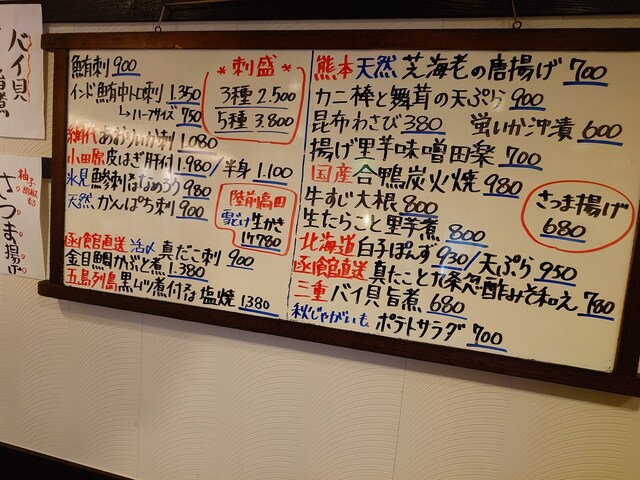 バイ貝
旨煮
柚子
さつま揚げ
鮪刺 900
インド鮪中トロ刺 1.350
↳ハーフサイズ 750
網代あおりいか刺 1.080
小田原皮はぎ肝付 1.980/半身 1.100
氷見鯵刺なめろう 980
天然かんぱち刺 900
函館直送 活〆真だこ刺 900
金目鯛かぶと煮 1.380
五島列島黒ムツ煮付 塩焼 1380
*刺盛*
3種 2.500
5種 3.800
陸前高田
雪どけ生かき
1ケ780
熊本天然芝海老の唐揚げ 700
カニ棒と舞茸の天ぷら 900
昆布わさび 380 蛍いか沖漬 600
揚げ里芋味噌田楽 700
国産合鴨炭火焼 980
牛すじ大根 800
生たらこと里芋煮 800
北海道白子ぽんず 930/天ぷら 950
函館直送真たこと九条ネギ酢みそ和え 780
三重バイ貝旨煮 680
秋じゃがいも ポテトサラダ 700
さつま揚げ
680